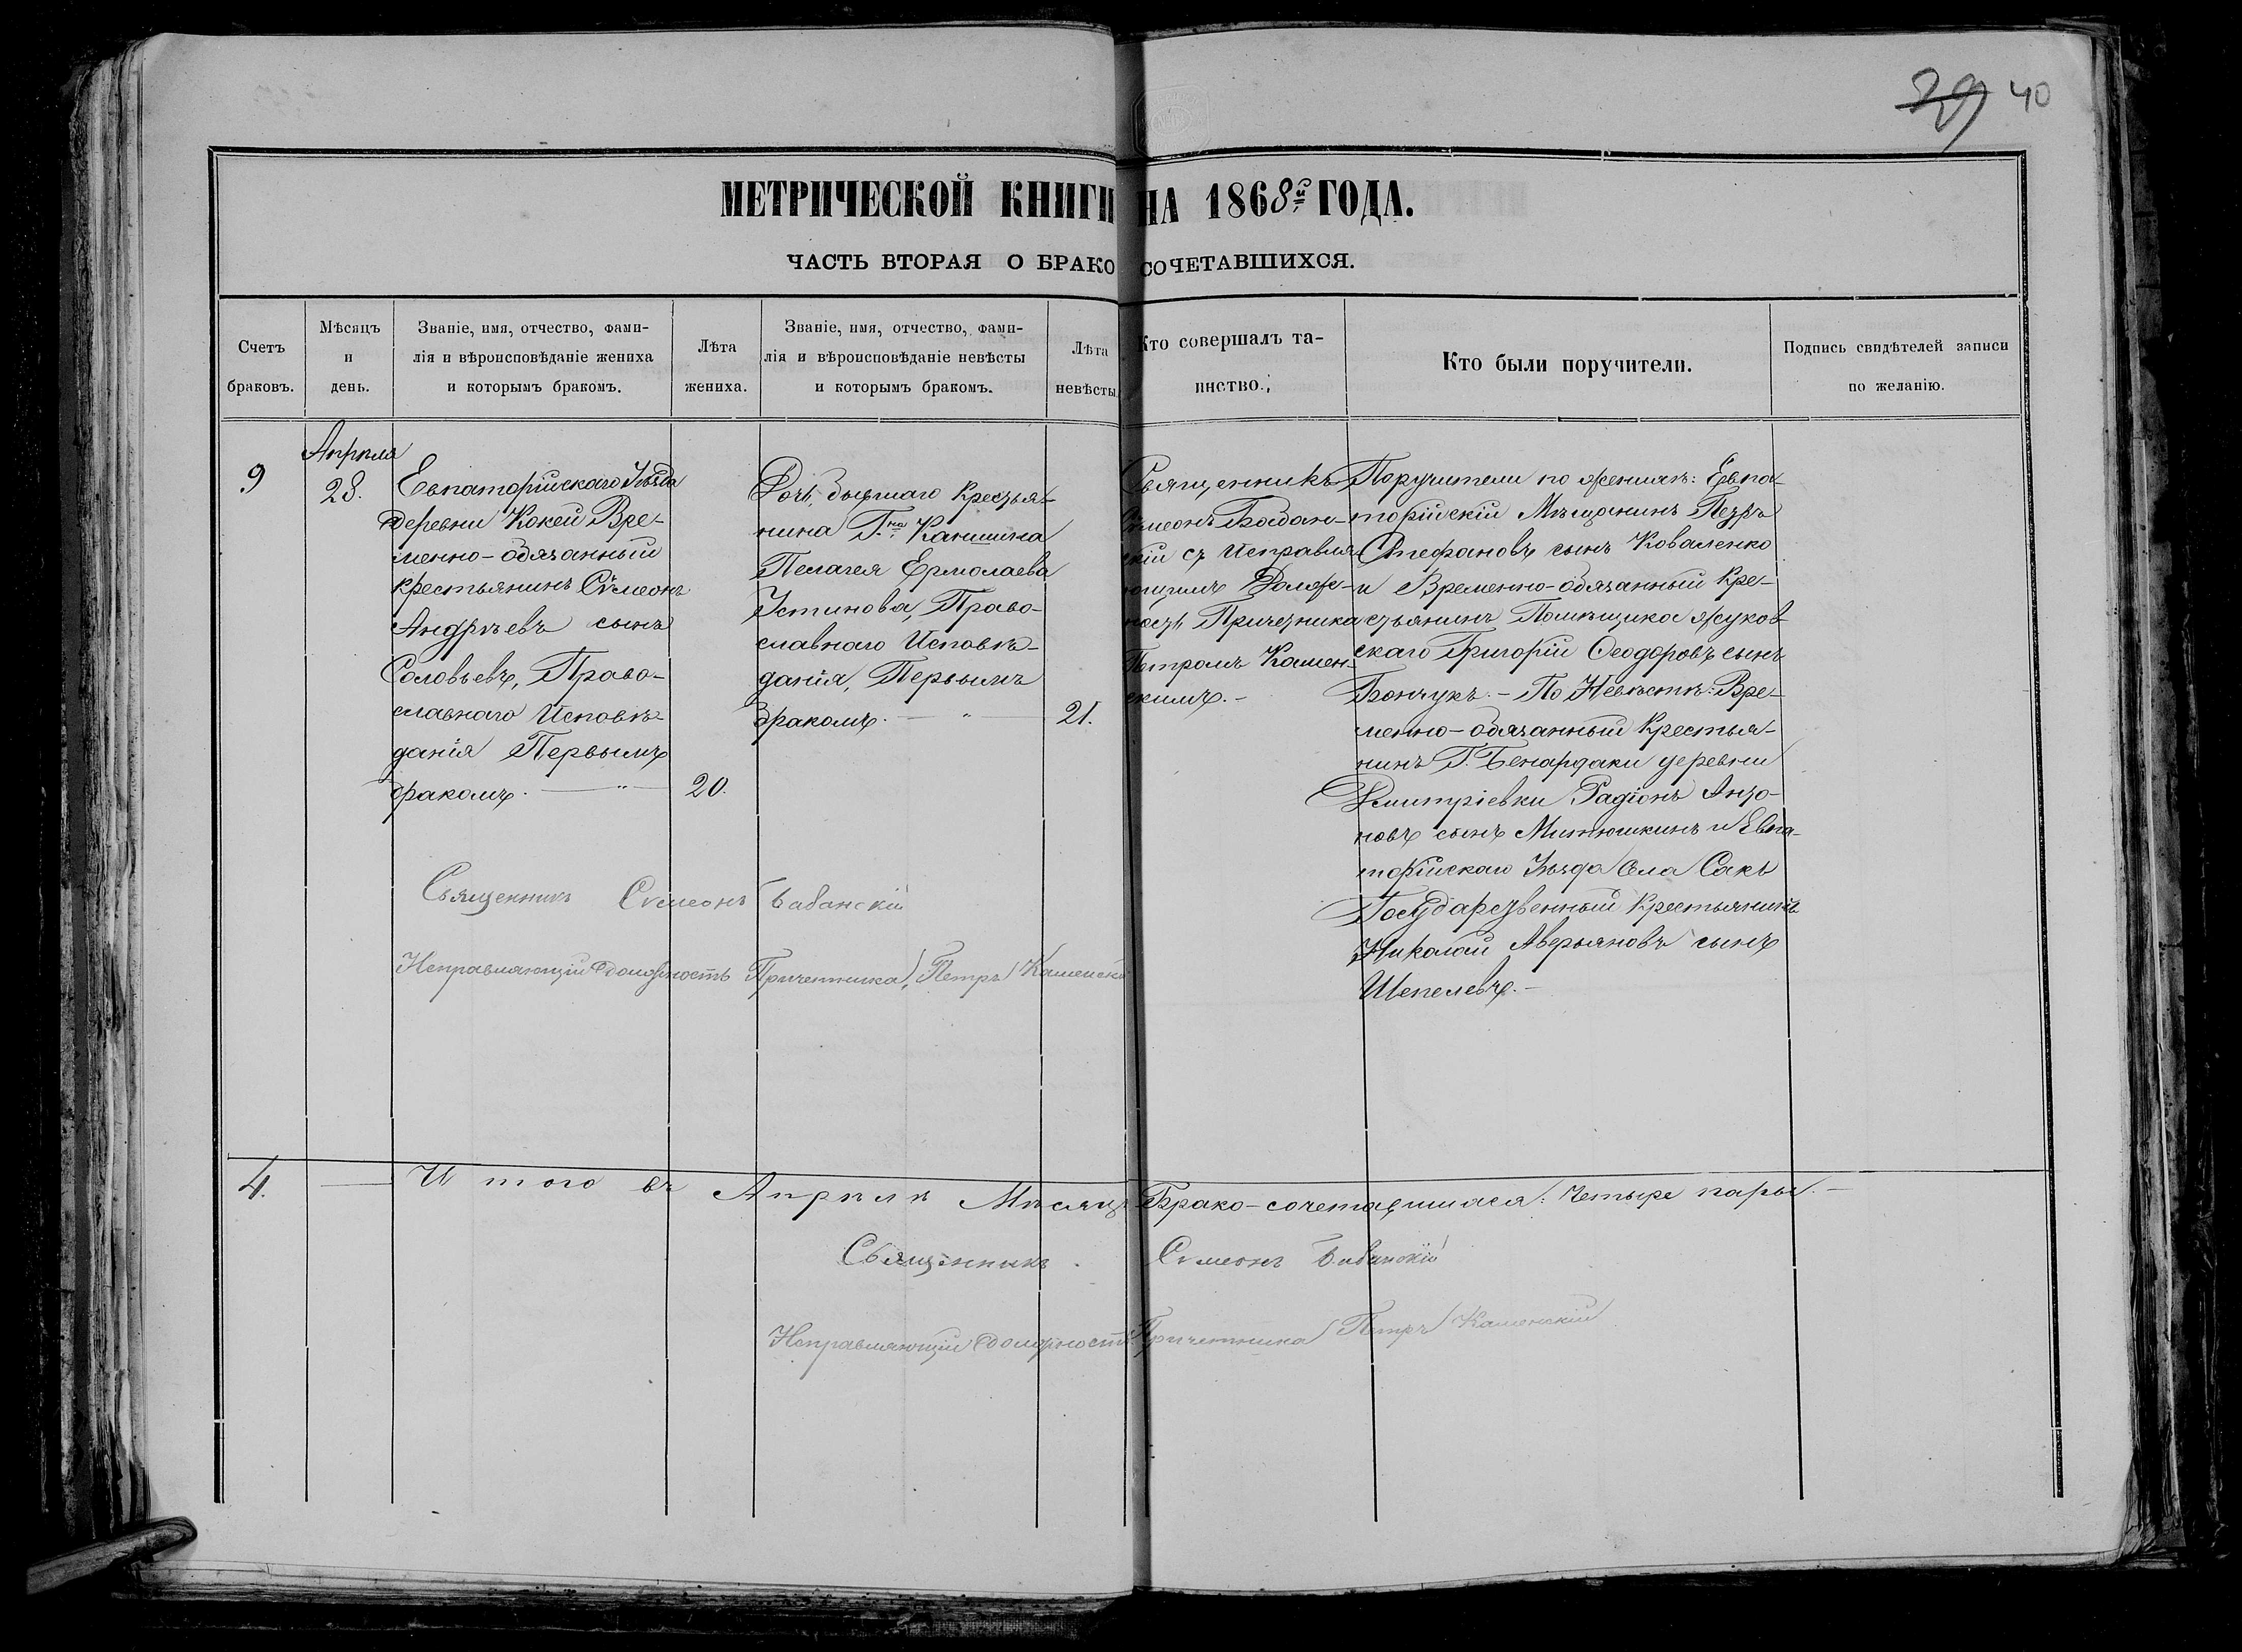 39 40
МЕТРИЧЕСКОЙ КНИГИ НА 1868й ГОДА.
ЧАСТЬ ВТОРАЯ О БРАКОСОЧЕТАВШИХСЯ.
Счетъ
браковъ.
Мѣсяцъ
и
день.
Званіе, имя, отчество, фами-
лія и вѣроисповѣданіе жениха
и которымъ бракомъ.
Лѣта
жениха.
Званіе, имя, отчество, фами-
лія и вѣроисповѣданіе невѣсты
и которымъ бракомъ.
Лѣта
невѣсты.
Кто совершалъ та-
инство.
Кто были поручители.
Подпись свидѣтелей записи
по желанію.
9
Апрѣля
28.
Евпаторійскаго Уѣзда
деревни Кокей Вре-
менно-обязанный
крестьянинъ Сѵмеонъ
Андрѣевъ сынъ
Соловьевъ, Право-
славнаго Исповѣ-
данія Первымъ
бракомъ. — " —
20.
Дочь бывшаго крестья-
нина Г.на Канишина
Пелагея Ермолаева
Устинова, Право-
славнаго Исповѣ-
данія, Первымъ
бракомъ. — " —
21.
Священникъ
Сѵмеонъ Бабан-
скій съ Исправля-
ющимъ Долж-
ность Причетника
Петромъ Камен-
скимъ. -
Поручители по женихѣ: Евпа-
торійскій Мѣщанинъ Петръ
Стефановъ сынъ Коваленко
и Временно-обязанный Кре-
стьянинъ Помѣщика Жуков-
скаго Григорій Ѳеодоровъ сынъ
Бончукъ. - По Невѣстѣ: Вре-
менно-обязанный Крестья-
нинъ Г. Бенардаки деревни
Дмитріевки Радіонъ Анто-
новъ сынъ Митюшкинъ и Евпа-
торійскаго Уѣзда Села Сакъ
Государственный Крестьянинъ
Николай Аверьяновъ сынъ
Шепелевъ. -
Священникъ Сѵмеонъ Бабанскій
Исправляющій должность Причетника, Петръ Каменскій
4. — И того въ Апрѣлѣ Мѣсяцѣ Брако-сочетавшихся: Четыре пары. —
Священникъ Сѵмеонъ Бабанскій
Исправляющій должность Причетника Петръ Каменскій